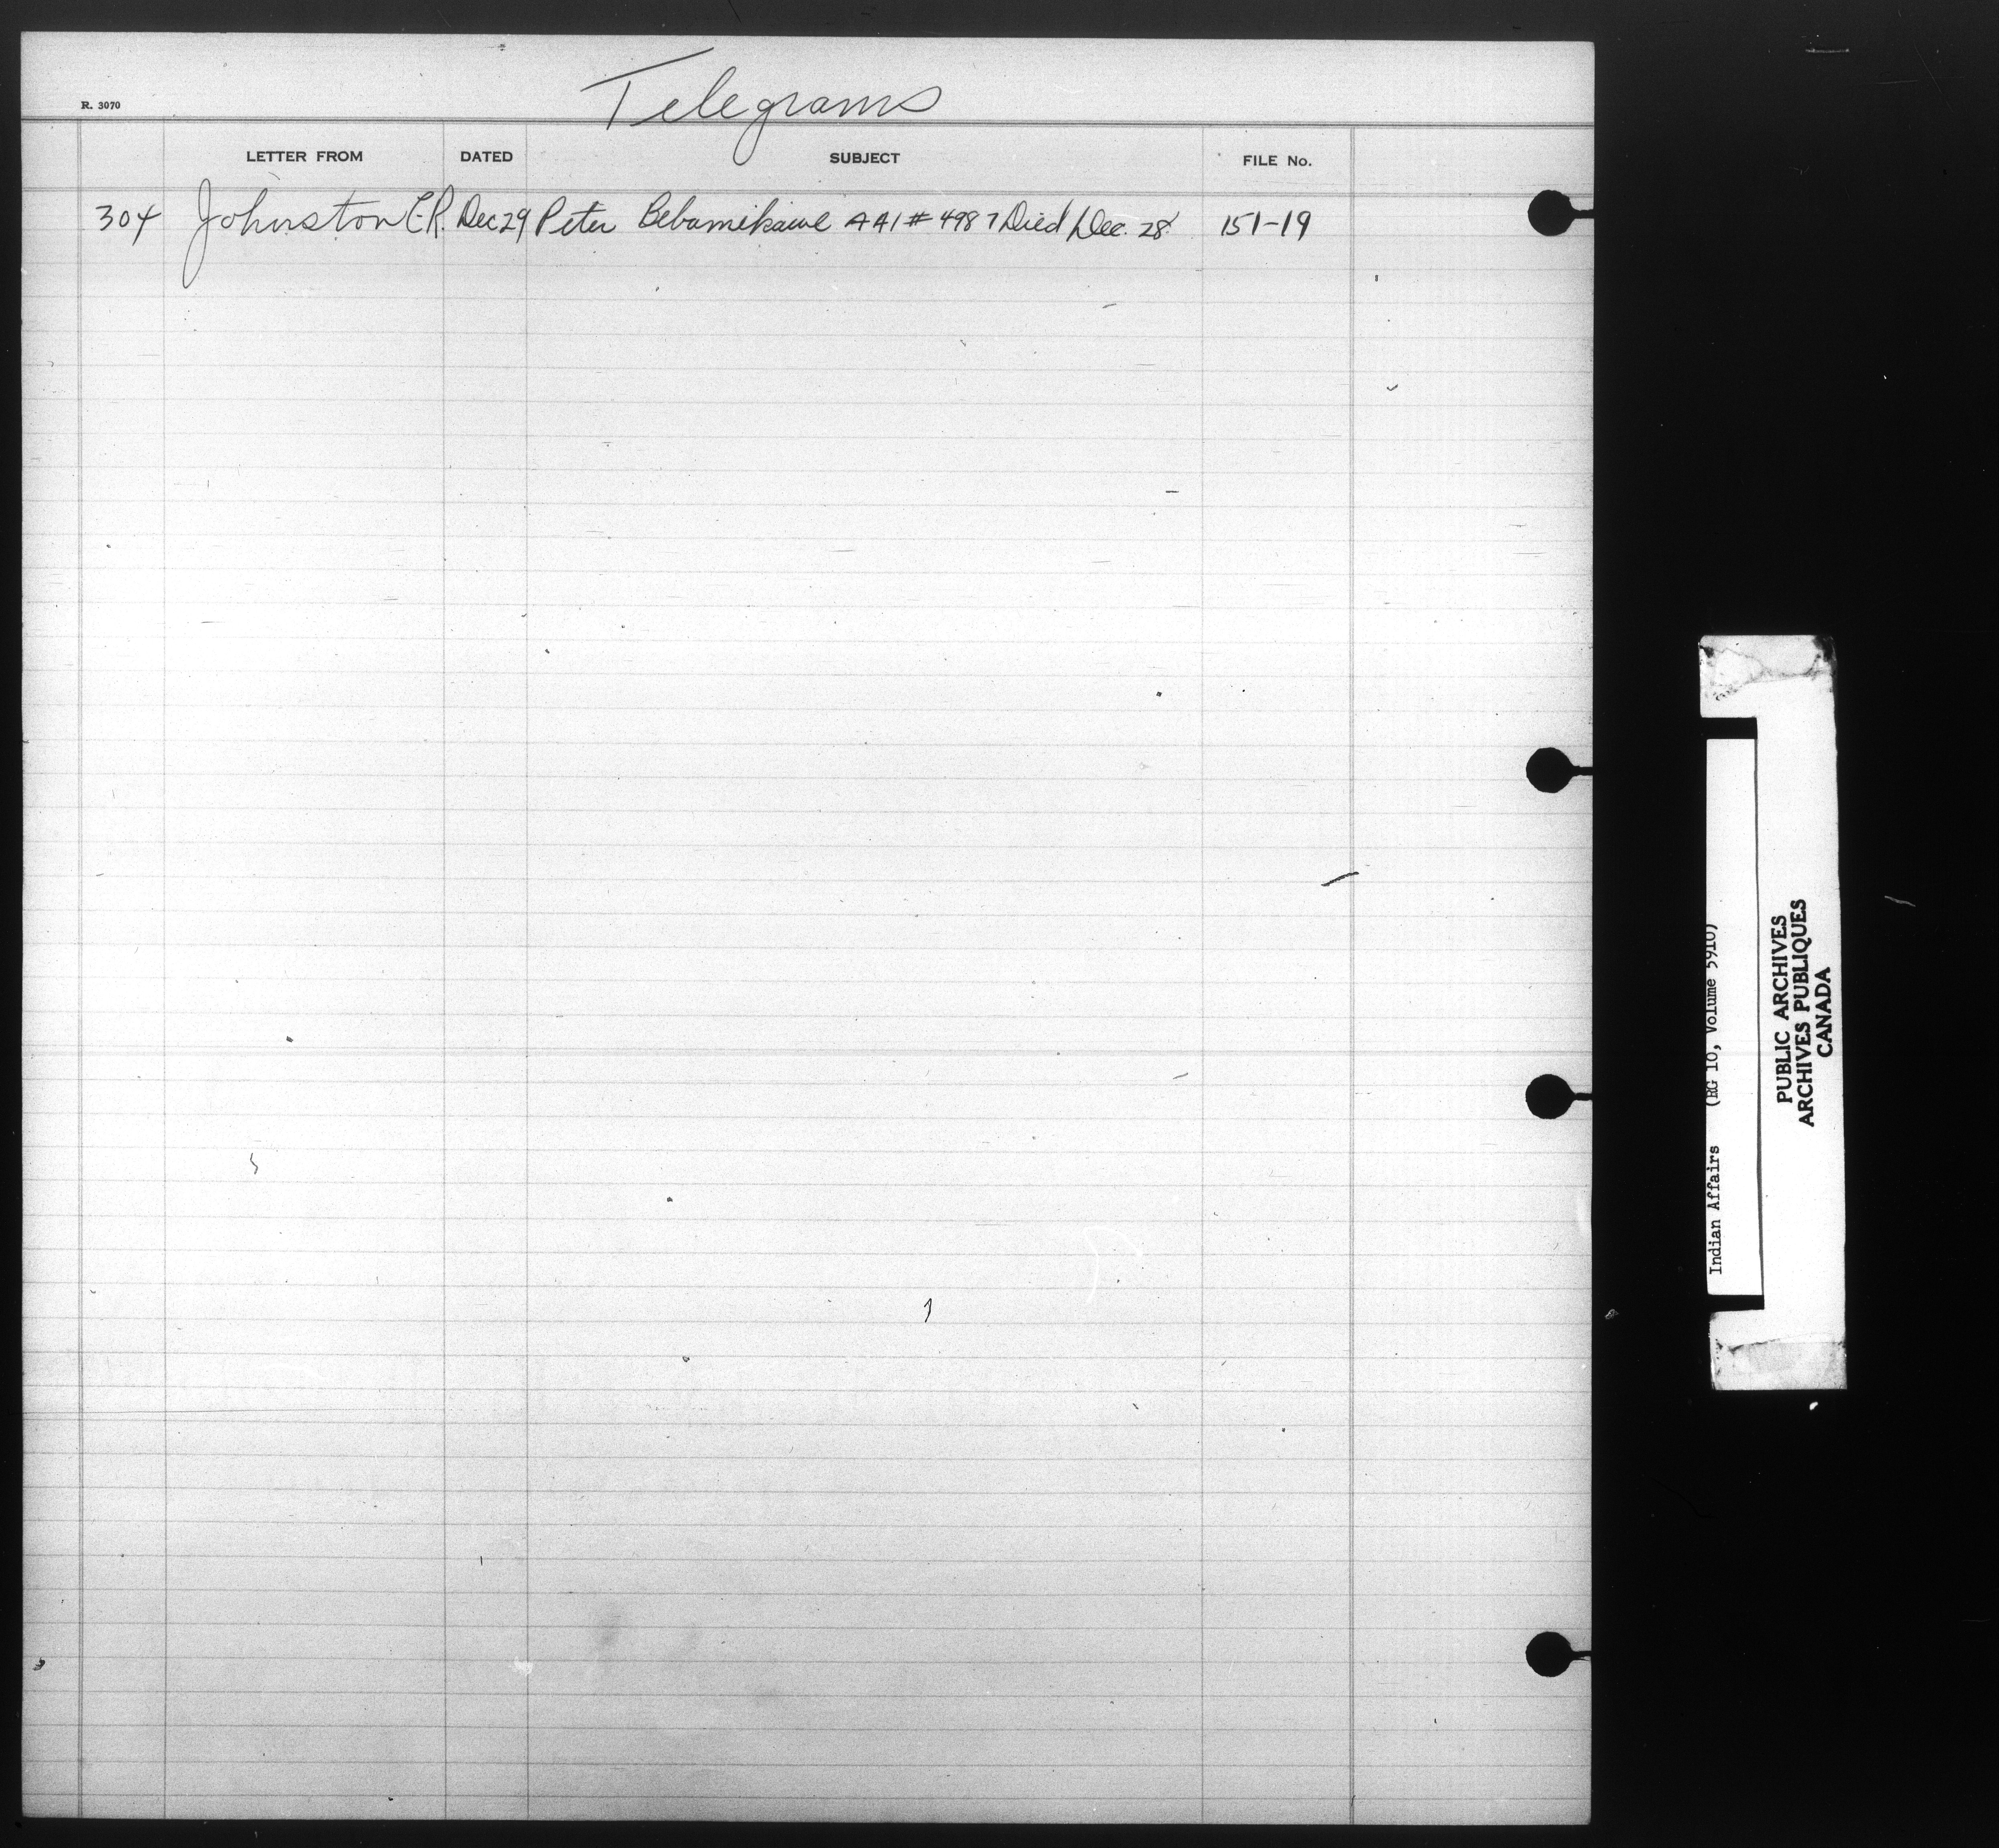 Telegrams
R. 3070
LETTER FROM DATED SUBJECT FILE No.
304 Johnston C.R. Dec 29 Peter Bebamikawe AA1 # 4987 Died Dec. 28 151-19
Indian Affairs (RG 10, Volume 5910)
PUBLIC ARCHIVES
ARCHIVES PUBLIQUES
CANADA